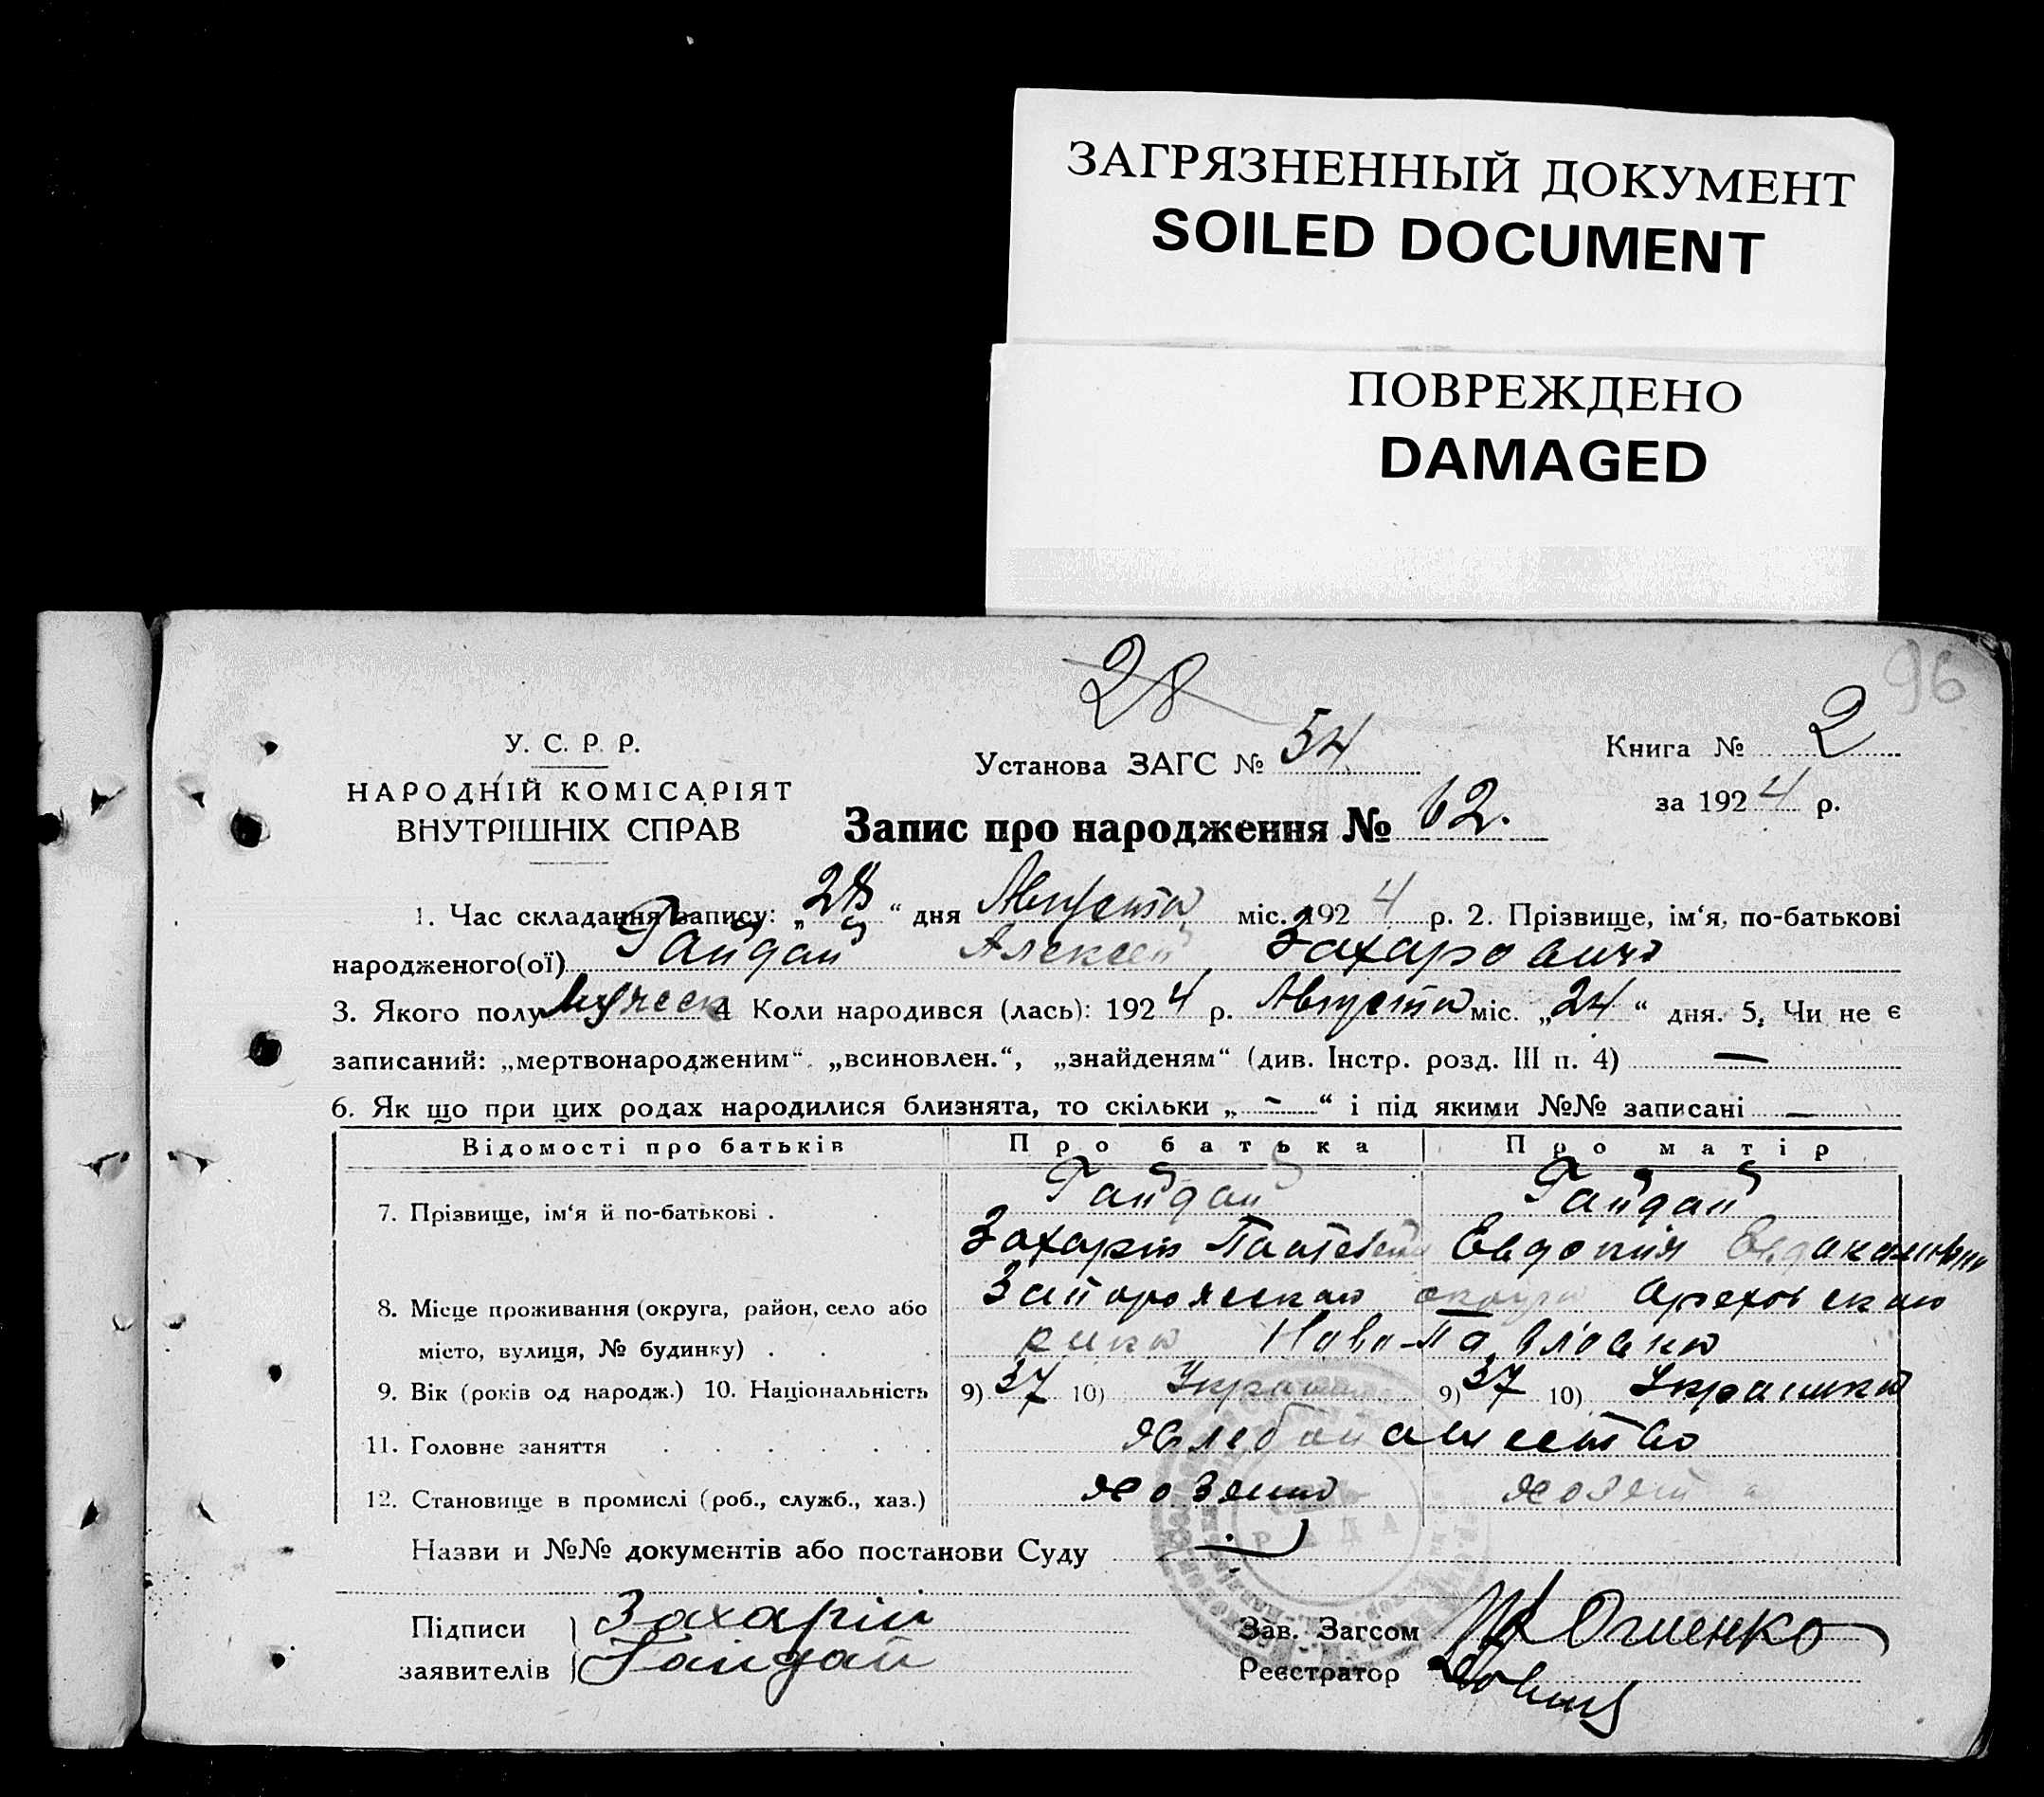 ЗАГРЯЗНЕННЫЙ ДОКУМЕНТ
SOILED DOCUMENT
ПОВРЕЖДЕНО
DAMAGED
96
28
У. С. Р. Р.
НАРОДНІЙ КОМІСАРІЯТ
ВНУТРІШНІХ СПРАВ
Установа ЗАГС № 54
Книга № 2
за 1924 р.
Запис про народження № 62.
1. Час складання запису: „28“ дня Августа міс. 1924 р. 2. Прізвище, ім'я, по-батькові
народженого(ої) Гайдай Алексей Захарович
3. Якого полу Мужеск 4 Коли народився (лась): 1924 р. Августа міс. „24“ дня. 5. Чи не є
записаний: „мертвонародженим“. „всиновлен.“, „знайденям“ (див. Інстр. розд. III п. 4) —
6. Як що при цих родах народилися близнята, то скільки „-“ і під якими №№ записані —
Відомості про батьків Про батька Про матір
7. Прізвище, ім'я й по-батькові . . Гайдай Гайдай
Захарій Евдокия
8. Місце проживання (округа, район, село або Запорожскаю округи Ореховскаю
місто, вулиця, № будинку) . . . Ново-Павловка
9. Вік (років од народж.) 10. Національність 9) 37 10) 9) 37 10) Украинка
11. Головне заняття . . . . . .
12. Становище в промислі (роб., служб., хаз.)
РАДА
Назви и №№ документів або постанови Суду
Підписи Захарій
заявителів Гайдай
Зав. Загсом
Реєстратор